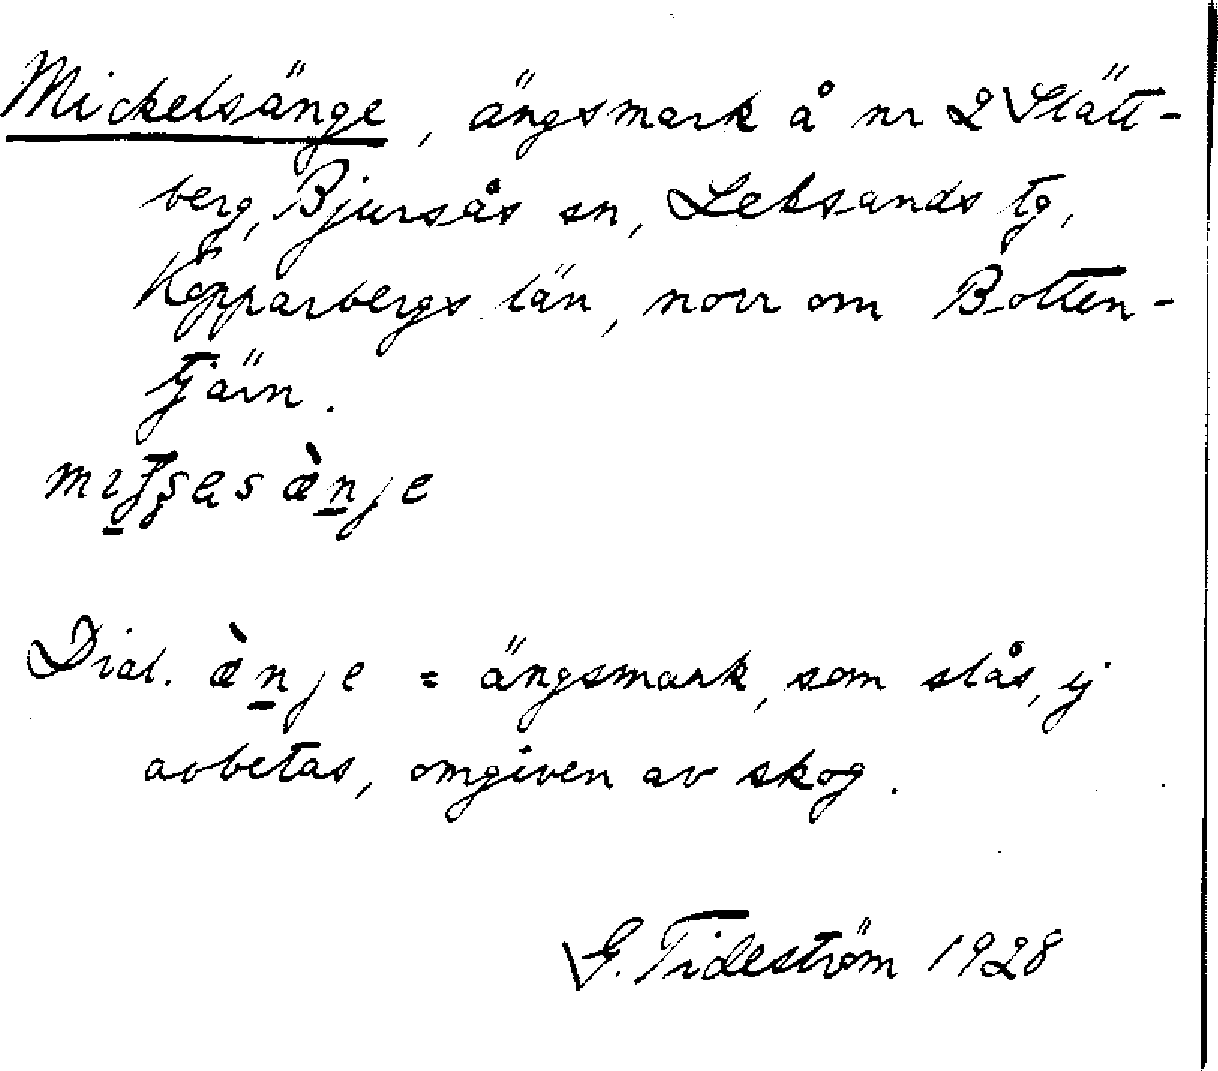 Mickelsänge, ängsmark å nr 2 Slätt-
berg, Bjursås sn, Leksands tg,
Kopparbergs län, norr om Botten-
tjärn.
ænje
Dial. ænje = ängsmark, som slås, ej
arbetas, omgiven av skog.
G. Tideström 1928